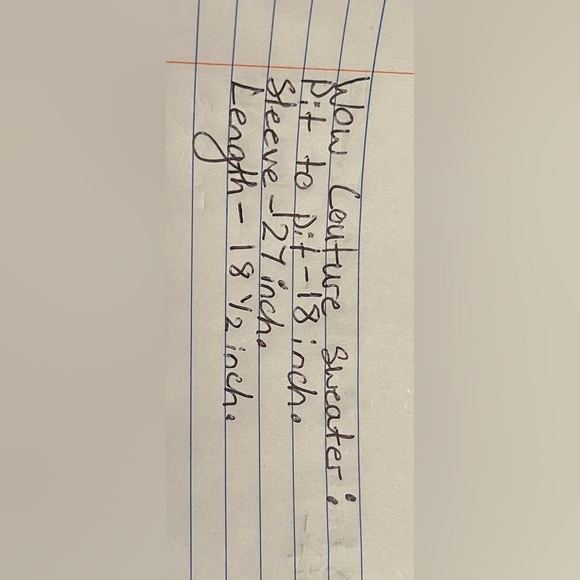 Wow Couture Sweater:
Pit to Pit - 18 inch.
Sleeve - 27 inch.
Length - 18 1/2 inch.